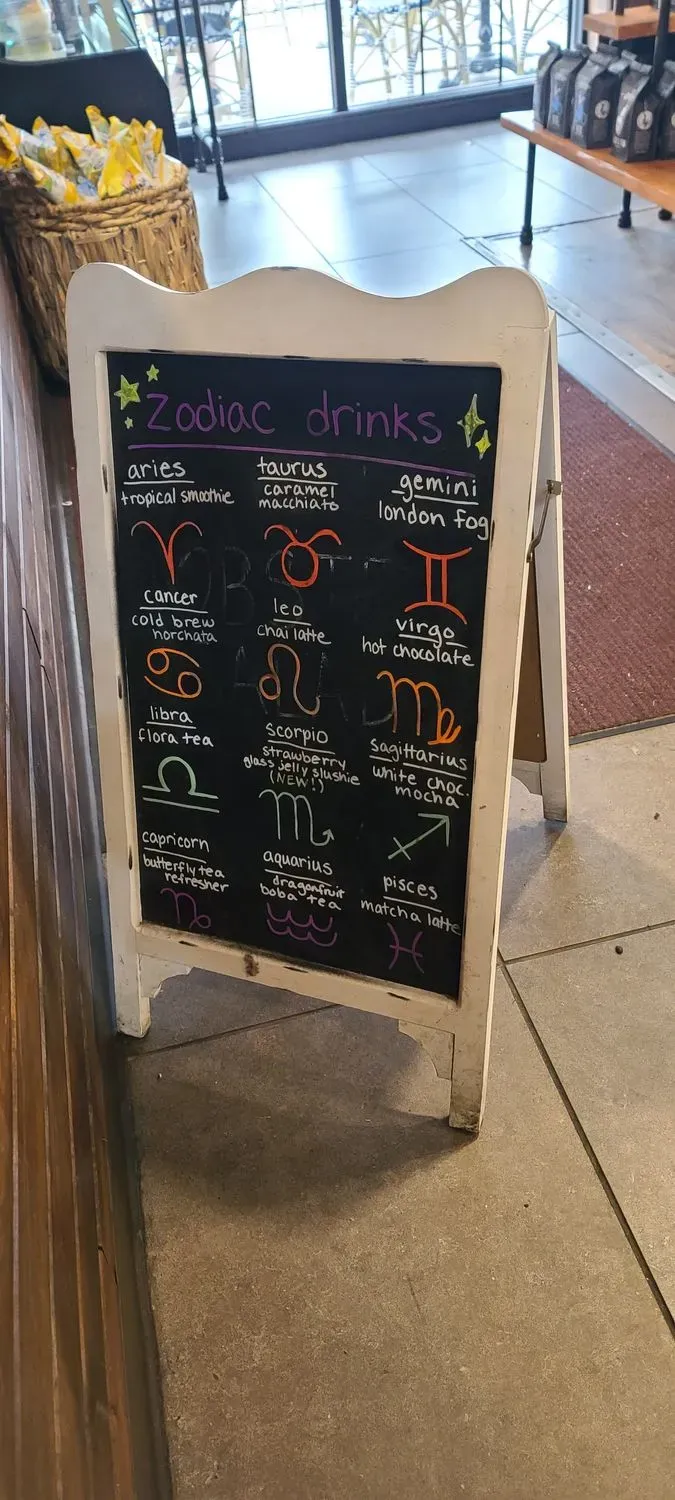 zodiac drinks
aries
tropical smoothie
taurus
caramel
macchiato
gemini
london fog
cancer
cold brew
horchata
leo
chai latte
virgo
hot chocolate
libra
flora tea
scorpio
strawberry
glass jelly slushie
(NEW!)
sagittarius
white choc.
mocha
capricorn
butterfly tea
refresher
aquarius
dragonfruit
boba tea
pisces
matcha latte